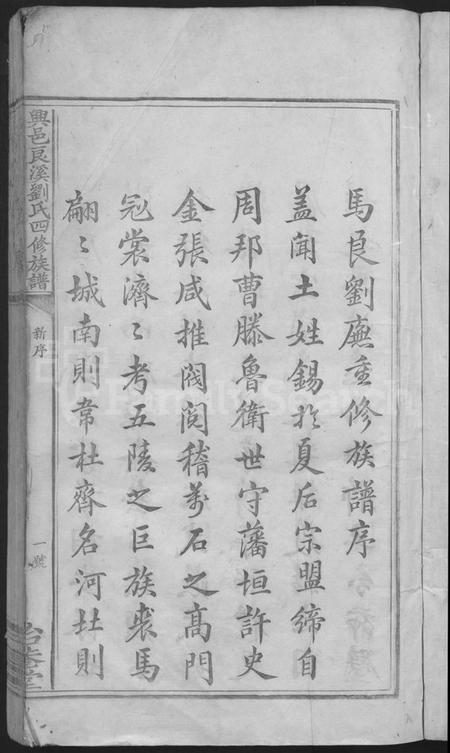 馬良劉廡重修族譜序
盖聞土姓錫於夏后宗盟締自
周邦曹滕魯衛世守藩垣許史
金張咸推閥閱稽萬石之髙門
冠裳濟〻考五陵之巨族裘馬
翩〻城南則韋杜齊名河北則
興邑良溪劉氏四修族譜
新序
一號
FamilySearch